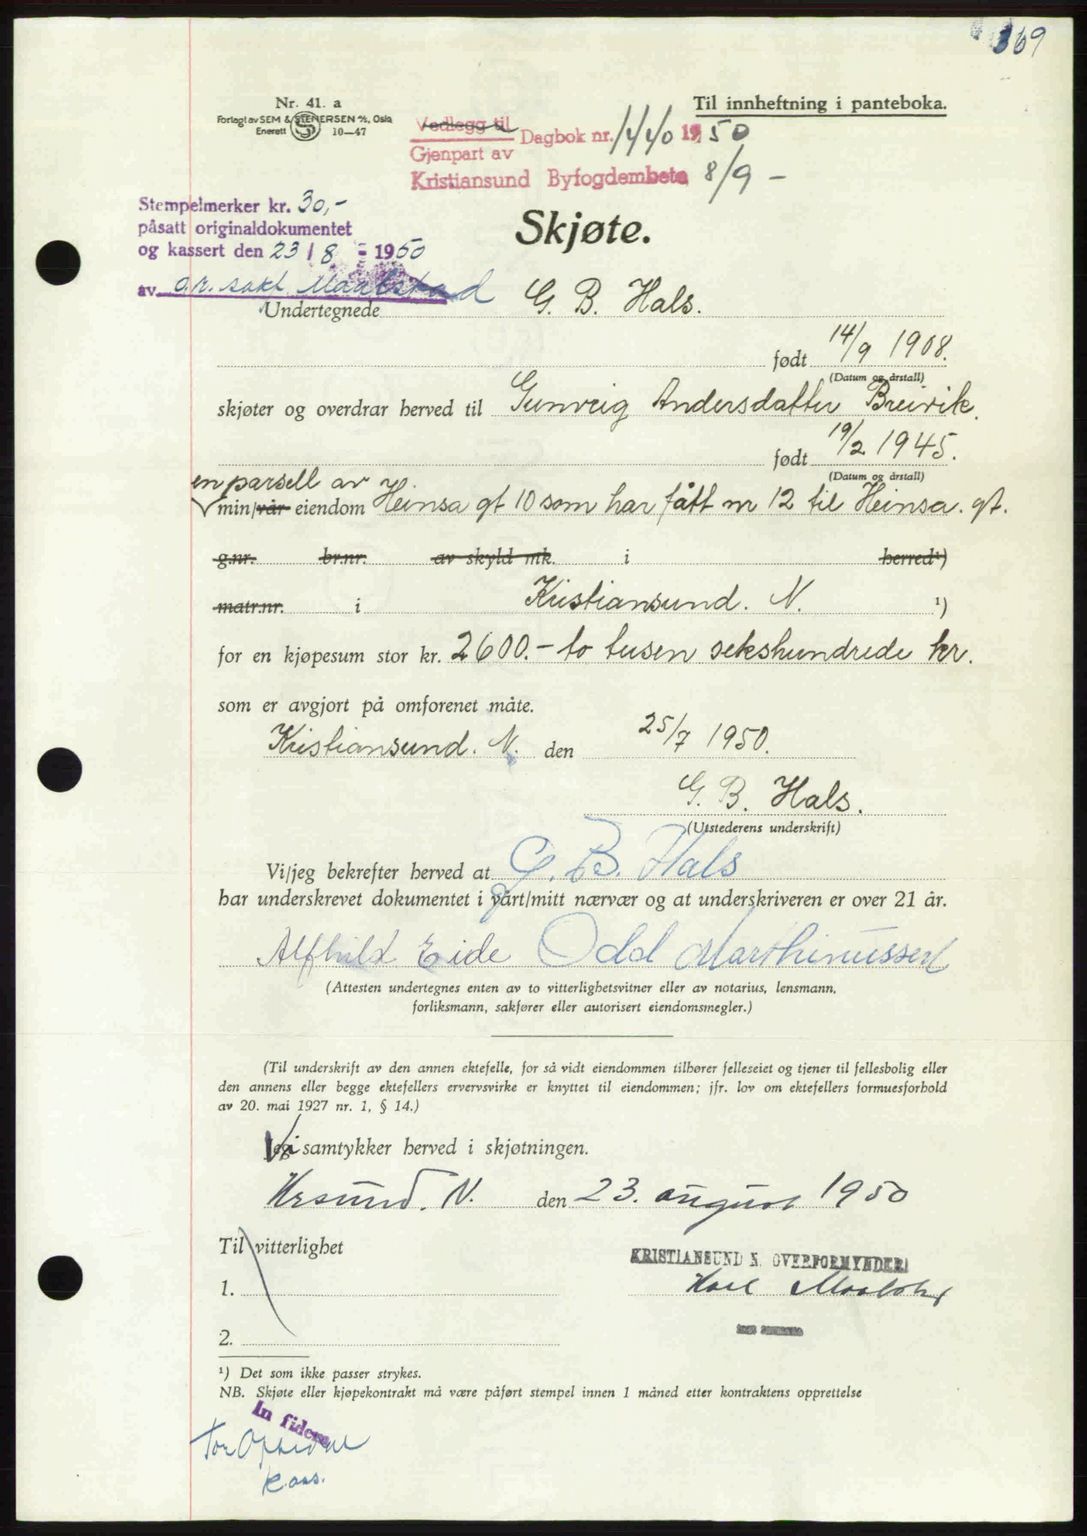 369
Nr. 41. a
Forlagt av SEM & STENERSEN A/S, Oslo
Enerett 10—47
Til innheftning i panteboka.
Vedlegg til
Gjenpart av
Dagbok nr. 1440 1950
Kristiansund Byfogdembete 8/9 -
Stempelmerker kr. 30,-
påsatt originaldokumentet
og kassert den 23/8 - 1950
av o.r. sakf.
Skjøte.
Undertegnede G. B. Hals.
født 14/9 1908.
(Datum og årstall)
skjøter og overdrar herved til Gunveig Andersdatter Breivik.
født 19/2 1945.
(Datum og årstall)
en parsell av
min/vår eiendom Heinsa gt 10 som har fått nr 12 til Heinsa. gt.
g.nr. br.nr. av skyld mk. i herred¹)
matr.nr. i Kristiansund. N. ¹)
for en kjøpesum stor kr. 2600.- to tusen sekshundrede kr.
som er avgjort på omforenet måte.
Kristiansund. N. den 25/7 1950.
G. B. Hals.
(Utstederens underskrift)
Vi/jeg bekrefter herved at G. B. Hals
har underskrevet dokumentet i vårt/mitt nærvær og at underskriveren er over 21 år.
Alfhild Eide Odd Marthinussen
(Attesten undertegnes enten av to vitterlighetsvitner eller av notarius, lensmann,
forliksmann, sakfører eller autorisert eiendomsmegler.)
(Til underskrift av den annen ektefelle, for så vidt eiendommen tilhører felleseiet og tjener til fellesbolig eller
den annens eller begge ektefellers ervervsvirke er knyttet til eiendommen; jfr. lov om ektefellers formuesforhold
av 20. mai 1927 nr. 1, § 14.)
Vi samtykker herved i skjøtningen.
Krsund. N. den 23. august 1950
Til vitterlighet
KRISTIANSUND N. OVERFORMYNDERI
1.
2.
¹) Det som ikke passer strykes.
NB. Skjøte eller kjøpekontrakt må være påført stempel innen 1 måned etter kontraktens opprettelse
In fidem